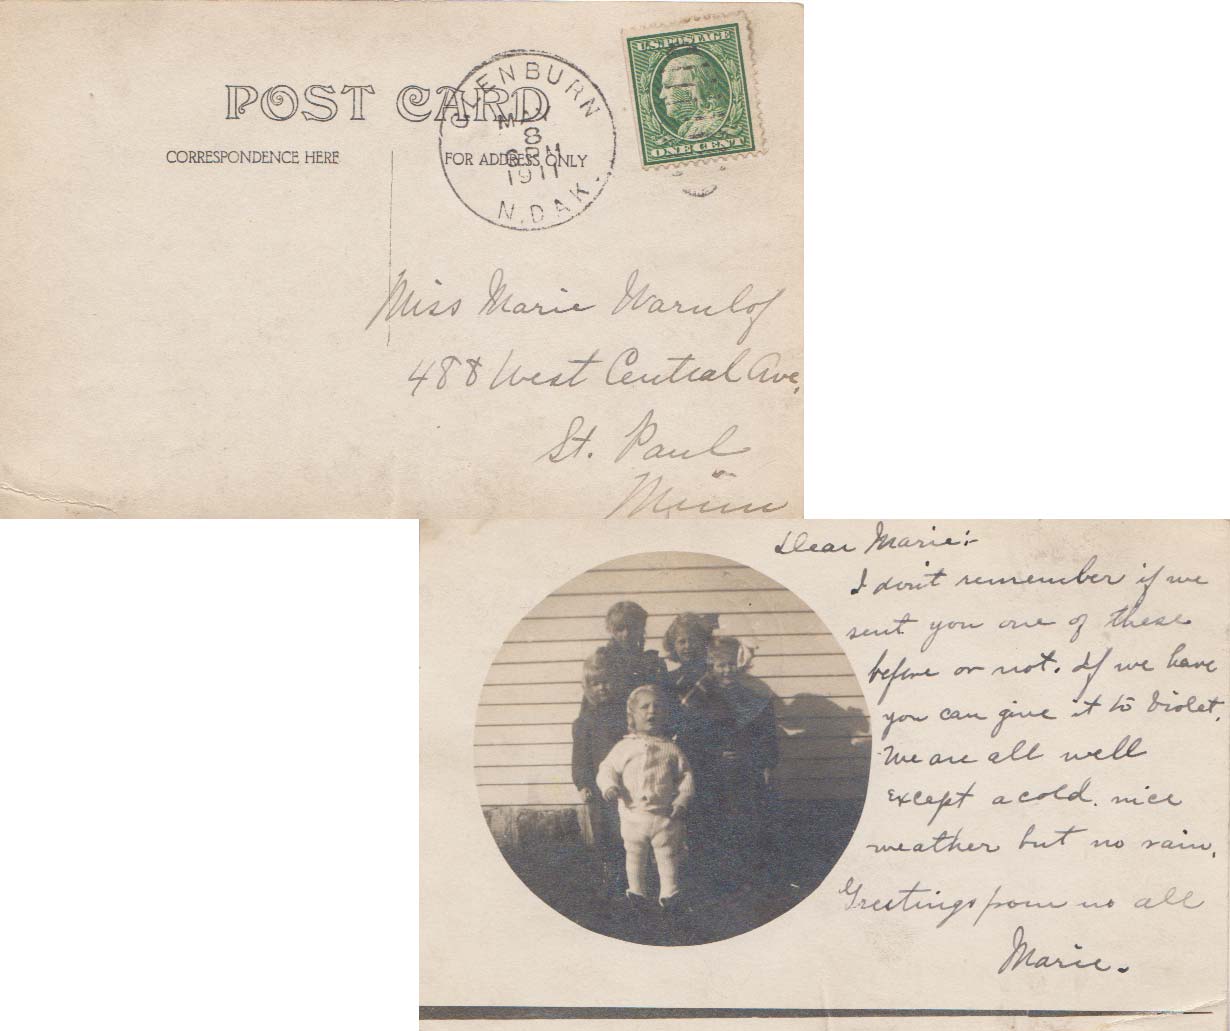 POST CARD
CORRESPONDENCE HERE
FOR ADDRESS ONLY
GLENBURN
MAY
8
6 PM
1911
N. DAK.
U.S. POSTAGE
ONE CENT
Miss Marie Warnlof
488 West Central Ave,
St. Paul
Minn
Dear Marie:-
I don't remember if we
sent you one of these
before or not. If we have
you can give it to Violet.
We are all well
except a cold. nice
weather but no rain.
Greetings from us all
Marie.